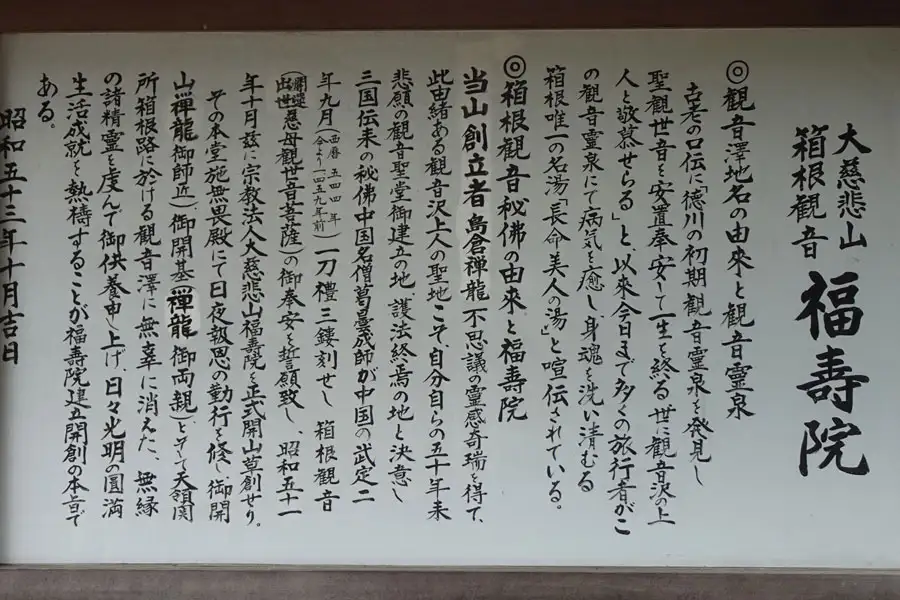 大慈悲山
箱根観音
福壽院
◎観音澤地名の由來と観音霊泉
古老の口伝に「徳川の初期観音霊泉を発見し
聖觀世音を安置奉安して一生を終る 世に観音沢の上
人と敬慕せらる」と、以來今日まで多くの旅行者がこ
の観音霊泉にて病気を癒し身魂を洗い清むる
箱根唯一の名湯「長命美人の湯」と喧伝されている。
◎箱根観音秘佛の由來と福壽院
当山創立者 島倉禅龍 不思議の霊感奇瑞を得て、
此由緒ある観音沢上人の聖地こそ、自分自らの五十年来
悲願の観音聖堂御建立の地 護法終焉の地と決意し
三国伝来の秘佛中国名僧曇成師が中国の武定二
年九月(西暦五四四年 今より一四五九年前)一刀禮三鏤刻せし 箱根観音
(開運出世慈母觀世音菩薩)の御奉安を誓願致し、昭和五十一
年十月茲に宗教法人大慈悲山福壽院を正式開山草創せり。
その本堂施無畏殿にて日夜報恩の勤行を修し、御開
山禪龍御師近、御開基禪龍御両親)として天領関
所箱根路に於ける観音澤に無幸に消えた、無縁
の諸精霊を虔んで御供養申し上げ、日々光明の圓満
生活成就を熱禱することが福壽院建立開創の本旨で
ある。
昭和五十三年十月吉日